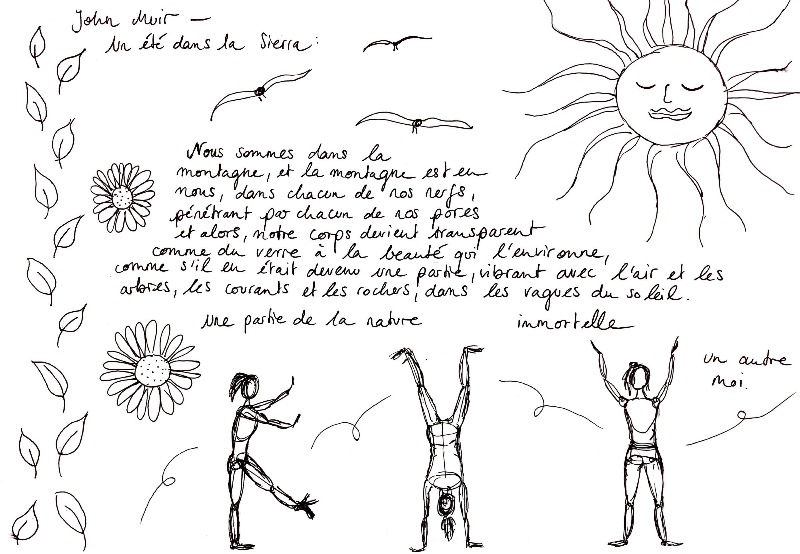 John Muir —
Un été dans la Sierra :
Nous sommes dans la
montagne, et la montagne est en
nous, dans chacun de nos nerfs,
pénétrant par chacun de nos pores
et alors, notre corps devient transparent
comme du verre à la beauté qui l'environne,
comme s'il en était devenu une partie, vibrant avec l'air et les
arbres, les courants et les rochers, dans les vagues du soleil.
une partie de la nature immortelle
un autre
moi.